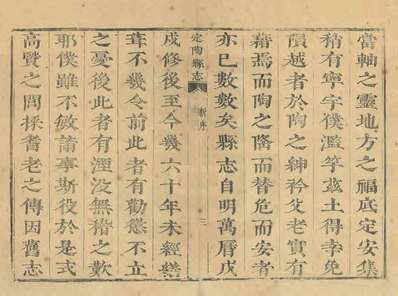 當軸之靈地方之福底定安集
稍有寧宇僕濫竽茲土得幸免
隕越者於陶之紳衿父老實有
藉焉而陶之而替危而安者
亦已數數矣縣志自明萬曆戊
定陶縣志
新序
三
戌修後至今幾六十年未經纂
葺不幾令前此者有勸懲不立
之憂後此者有湮没無稽之歎
耶僕雖不敏請事斯役於是式
高賢之閭採耆老之傳因舊志